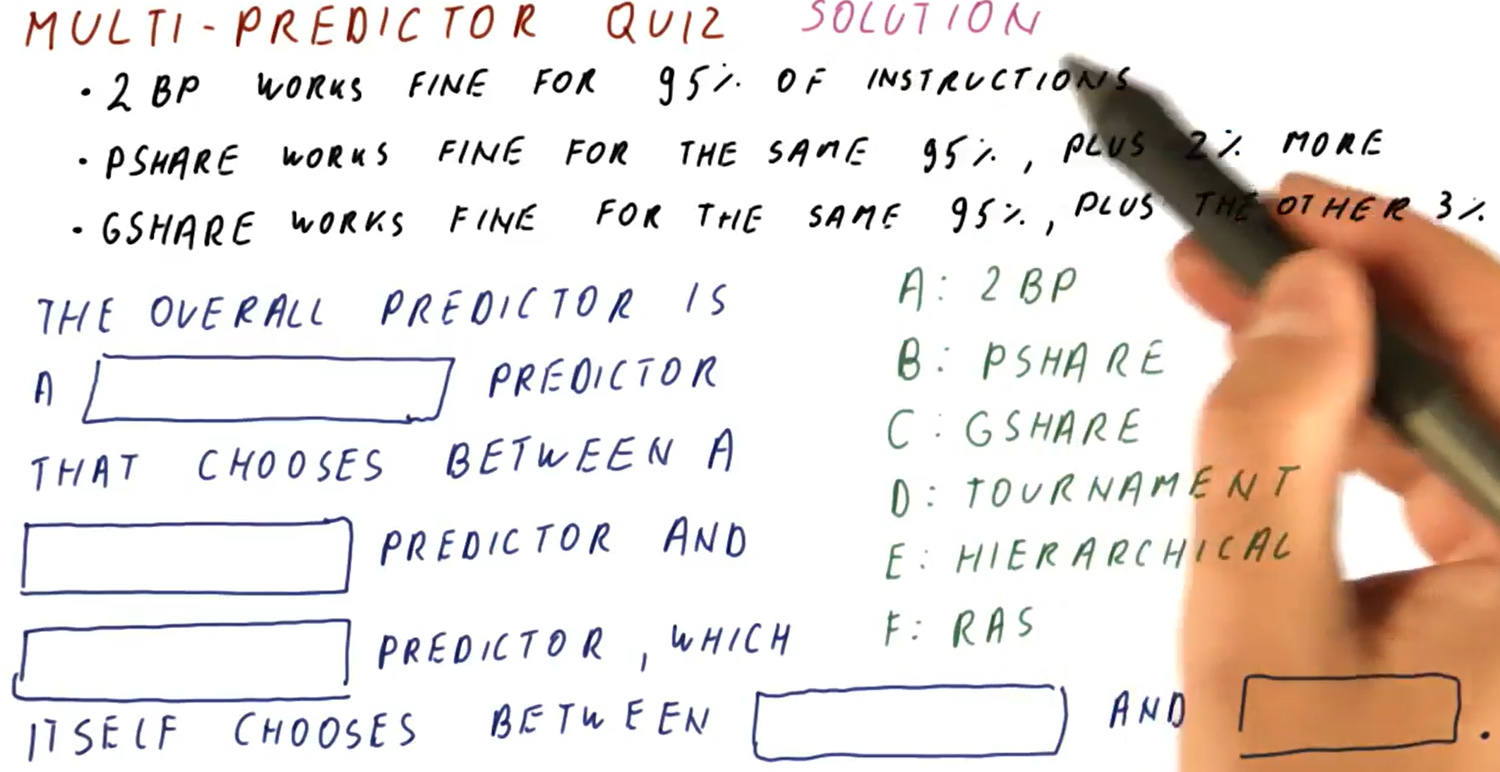 MULTI-PREDICTOR QUIZ SOLUTION
• 2BP WORKS FINE FOR 95% OF INSTRUCTIONS
• PSHARE WORKS FINE FOR THE SAME 95%, PLUS 2% MORE
• GSHARE WORKS FINE FOR THE SAME 95%, PLUS THE OTHER 3%
THE OVERALL PREDICTOR IS
A PREDICTOR
THAT CHOOSES BETWEEN A
PREDICTOR AND
PREDICTOR, WHICH
ITSELF CHOOSES BETWEEN AND .
A: 2BP
B: PSHARE
C: GSHARE
D: TOURNAMENT
E: HIERARCHICAL
F: RAS